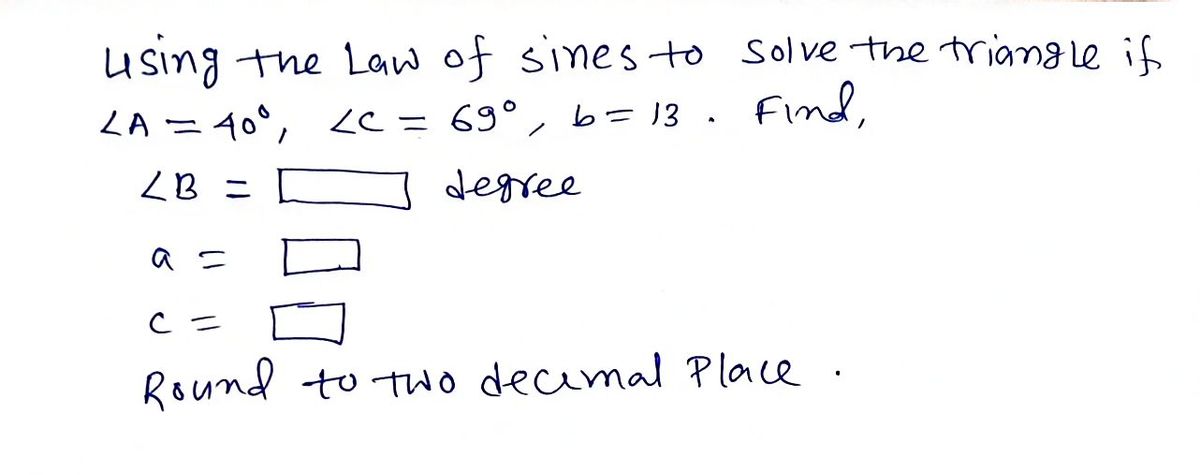 Using the Law of sines to solve the triangle if
∠A = 40°, ∠C = 69°, b = 13 . Find,
∠B = degree
a =
c =
Round to two decimal Place .